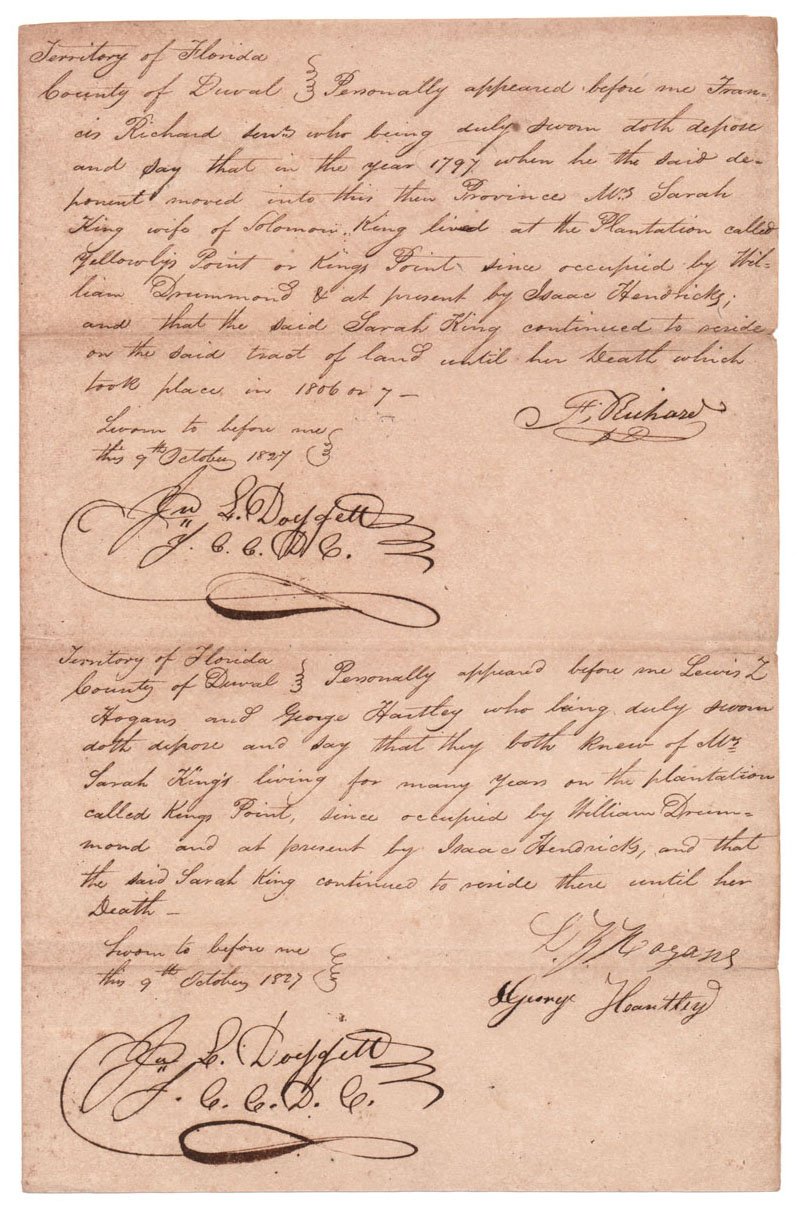 Territory of Florida
County of Duval } Personally appeared before me Fran-
cis Richard senr. who being duly sworn doth depose
and say that in the year 1797 when he the said de-
ponent moved into this then Province Mrs Sarah
King wife of Solomon King lived at the Plantation called
Yellowly's Point or Kings Point since occupied by Wil-
liam Drummond & at present by Isaac Hendricks;
and that the said Sarah King continued to reside
on the said tract of land until her Death which
took place in 1806 or 7 —
F. Richard
Sworn to before me
this 9th October 1827 }
Jno L. Doggett
J. C. C. D. C.
Territory of Florida
County of Duval } Personally appeared before me Lewis Z
Hogans and George Hartley who being duly sworn
doth depose and say that they both knew of Mrs
Sarah King's living for many years on the plantation
called Kings Point, since occupied by William Drum=
mond and at present by Isaac Hendricks, and that
the said Sarah King continued to reside there until her
Death —
L. Z. Hogans
Sworn to before me
this 9th October 1827 }
George Heartley
Jno L. Doggett
J. C. C. D. C.